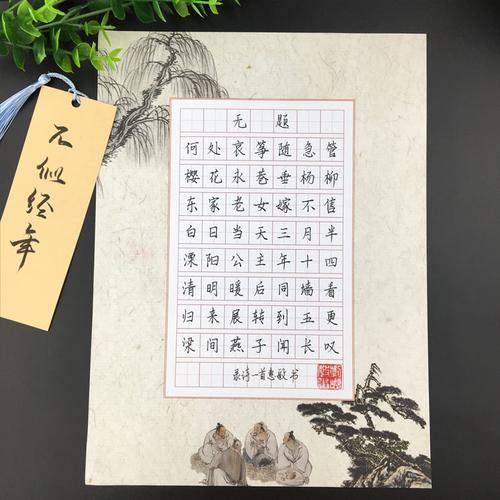 不似经年
无题
何处哀筝随急管
樱花永巷垂杨柳
东家老女嫁不信
白日当天三月半
溧阳公主年十四
清明暖后同墙看
归来展转到五更
梁间燕子闻长叹
录诗一首惠敏书